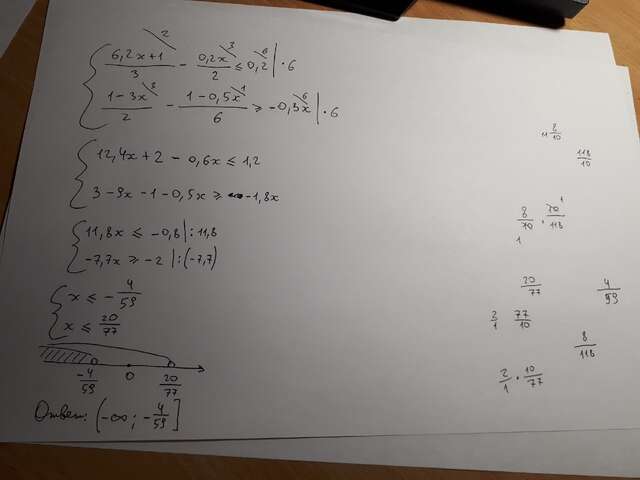 6,2x+1/3 ² - 0,2x/2 ³ ≤ 0,2 ⁶ | · 6
1-3x/2 ³ - 1-0,5x/6 ¹ ≥ -0,3x ⁶ | · 6
12,4x + 2 - 0,6x ≤ 1,2
3-9x - 1-0,5x ≥ -1,8x
11,8x ≤ -0,8 | : 11,8
-7,7x ≥ -2 | : (-7,7)
x ≤ - 4/59
x ≤ 20/77
-4/59 0 20/77
Ответ: (-∞; -4/59]
8/10
118/10
8/10 · 10/118
1 1
20/77 4/59
2/1 77/10
8/118
2/1 · 10/77